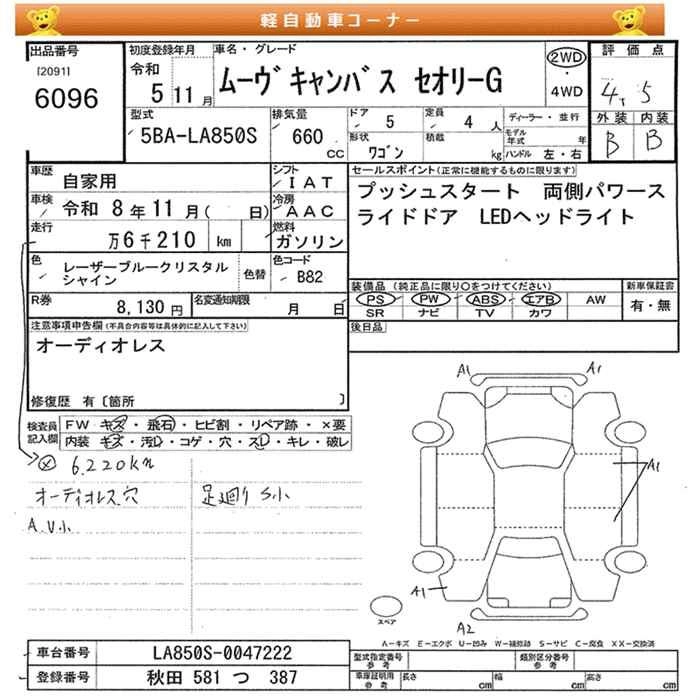 軽自動車コーナー
出品番号
[2091]
6096
初度登録年月
令和
5 11月
車名・グレード
ムーヴキャンバス セオリーG
2WD
4WD
評価点
4.5
外装 内装
B B
型式
5BA-LA850S
排気量
660
CC
ドア
5
定員
4 人
形状
ワゴン
積載
kg
ディーラー・並行
モデル年式
年
ハンドル 左・右
車歴
自家用
シフト
IAT
車検
令和 8年 11月( 日)
冷房
AAC
走行
万6千210 km
燃料
ガソリン
色
レーザーブルークリスタル
シャイン
色替
色コード
B82
R券
8,130 円
名変通知期限
月 日
セールスポイント(正常に機能するものに限ります)
プッシュスタート 両側パワース
ライドドア LEDヘッドライト
装備品 (純正品に限り〇をつけてください)
新車保証書
PS PW ABS エアB AW
有・無
SR ナビ TV カワ
後日品
注意事項申告欄(不具合内容等は具体的に記入して下さい)
オーディオレス
修復歴 有〔箇所 〕
検査員
記入欄
FW キズ・飛石・ヒビ割・リペア跡・×要
内装 キズ・汚レ・コゲ・穴・スレ・キレ・破レ
6,220km
オーディオレス穴
足廻りS小
A.U小
A1
A1
A1
A1
A2
スペア
A-キズ E-エクボ U-凹み W-補修跡 S-サビ C-腐食 XX-交換済
車台番号
LA850S-0047222
登録番号
秋田 581 つ 387
型式指定番号
参考
類別区分番号
参考
車庫証明用
参考
長さ
cm
幅
cm
高さ
cm